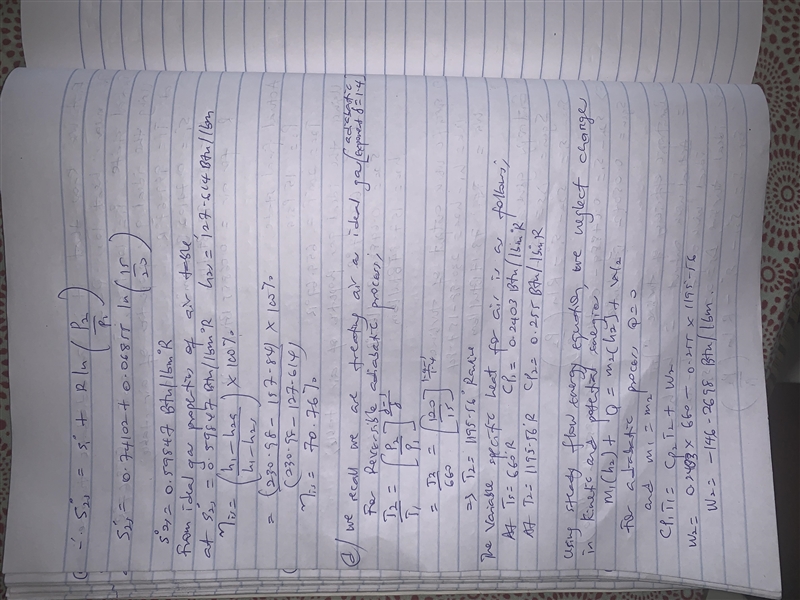 ∴ S°2s = S°1 + R ln (P2/P1)
S°2s = 0.74102 + 0.06855 ln (15/20)
S°2s = 0.59847 Btu/lbm°R
From ideal gas properties of air table
at S°2s = 0.59847 Btu/lbm°R h2s = 127.614 Btu/lbm
ηis = (h1 - h2a / h1 - h2s) × 100%
= (230.98 - 157.84) × 100%
(230.98 - 127.614)
ηis = 70.76%
d/ We recall we are treating air as ideal gas [adiabatic exponent γ=1.4
For Reversible adiabatic process;
T2/T1 = [P2/P1]^γ-1/γ
= T2/660 = [120/15]^1.4-1/1.4
=> T2 = 1195.56 Rankine
The Variable specific heat for air is as follows;
At T1 = 660°R CP1 = 0.2403 Btu/lbm°R
At T2 = 1195.56°R CP2 = 0.255 Btu/lbm°R
Using steady flow energy equation, we neglect change
in kinetic and potential energies
M1(h1) + Q = m2(h2) + W2
For adiabatic process Q = 0
and m1 = m2
CP1T1 = CP2T2 + W2
W2 = 0.2403 × 660 - 0.255 × 1195.56
W2 = -146.2698 Btu/lbm.